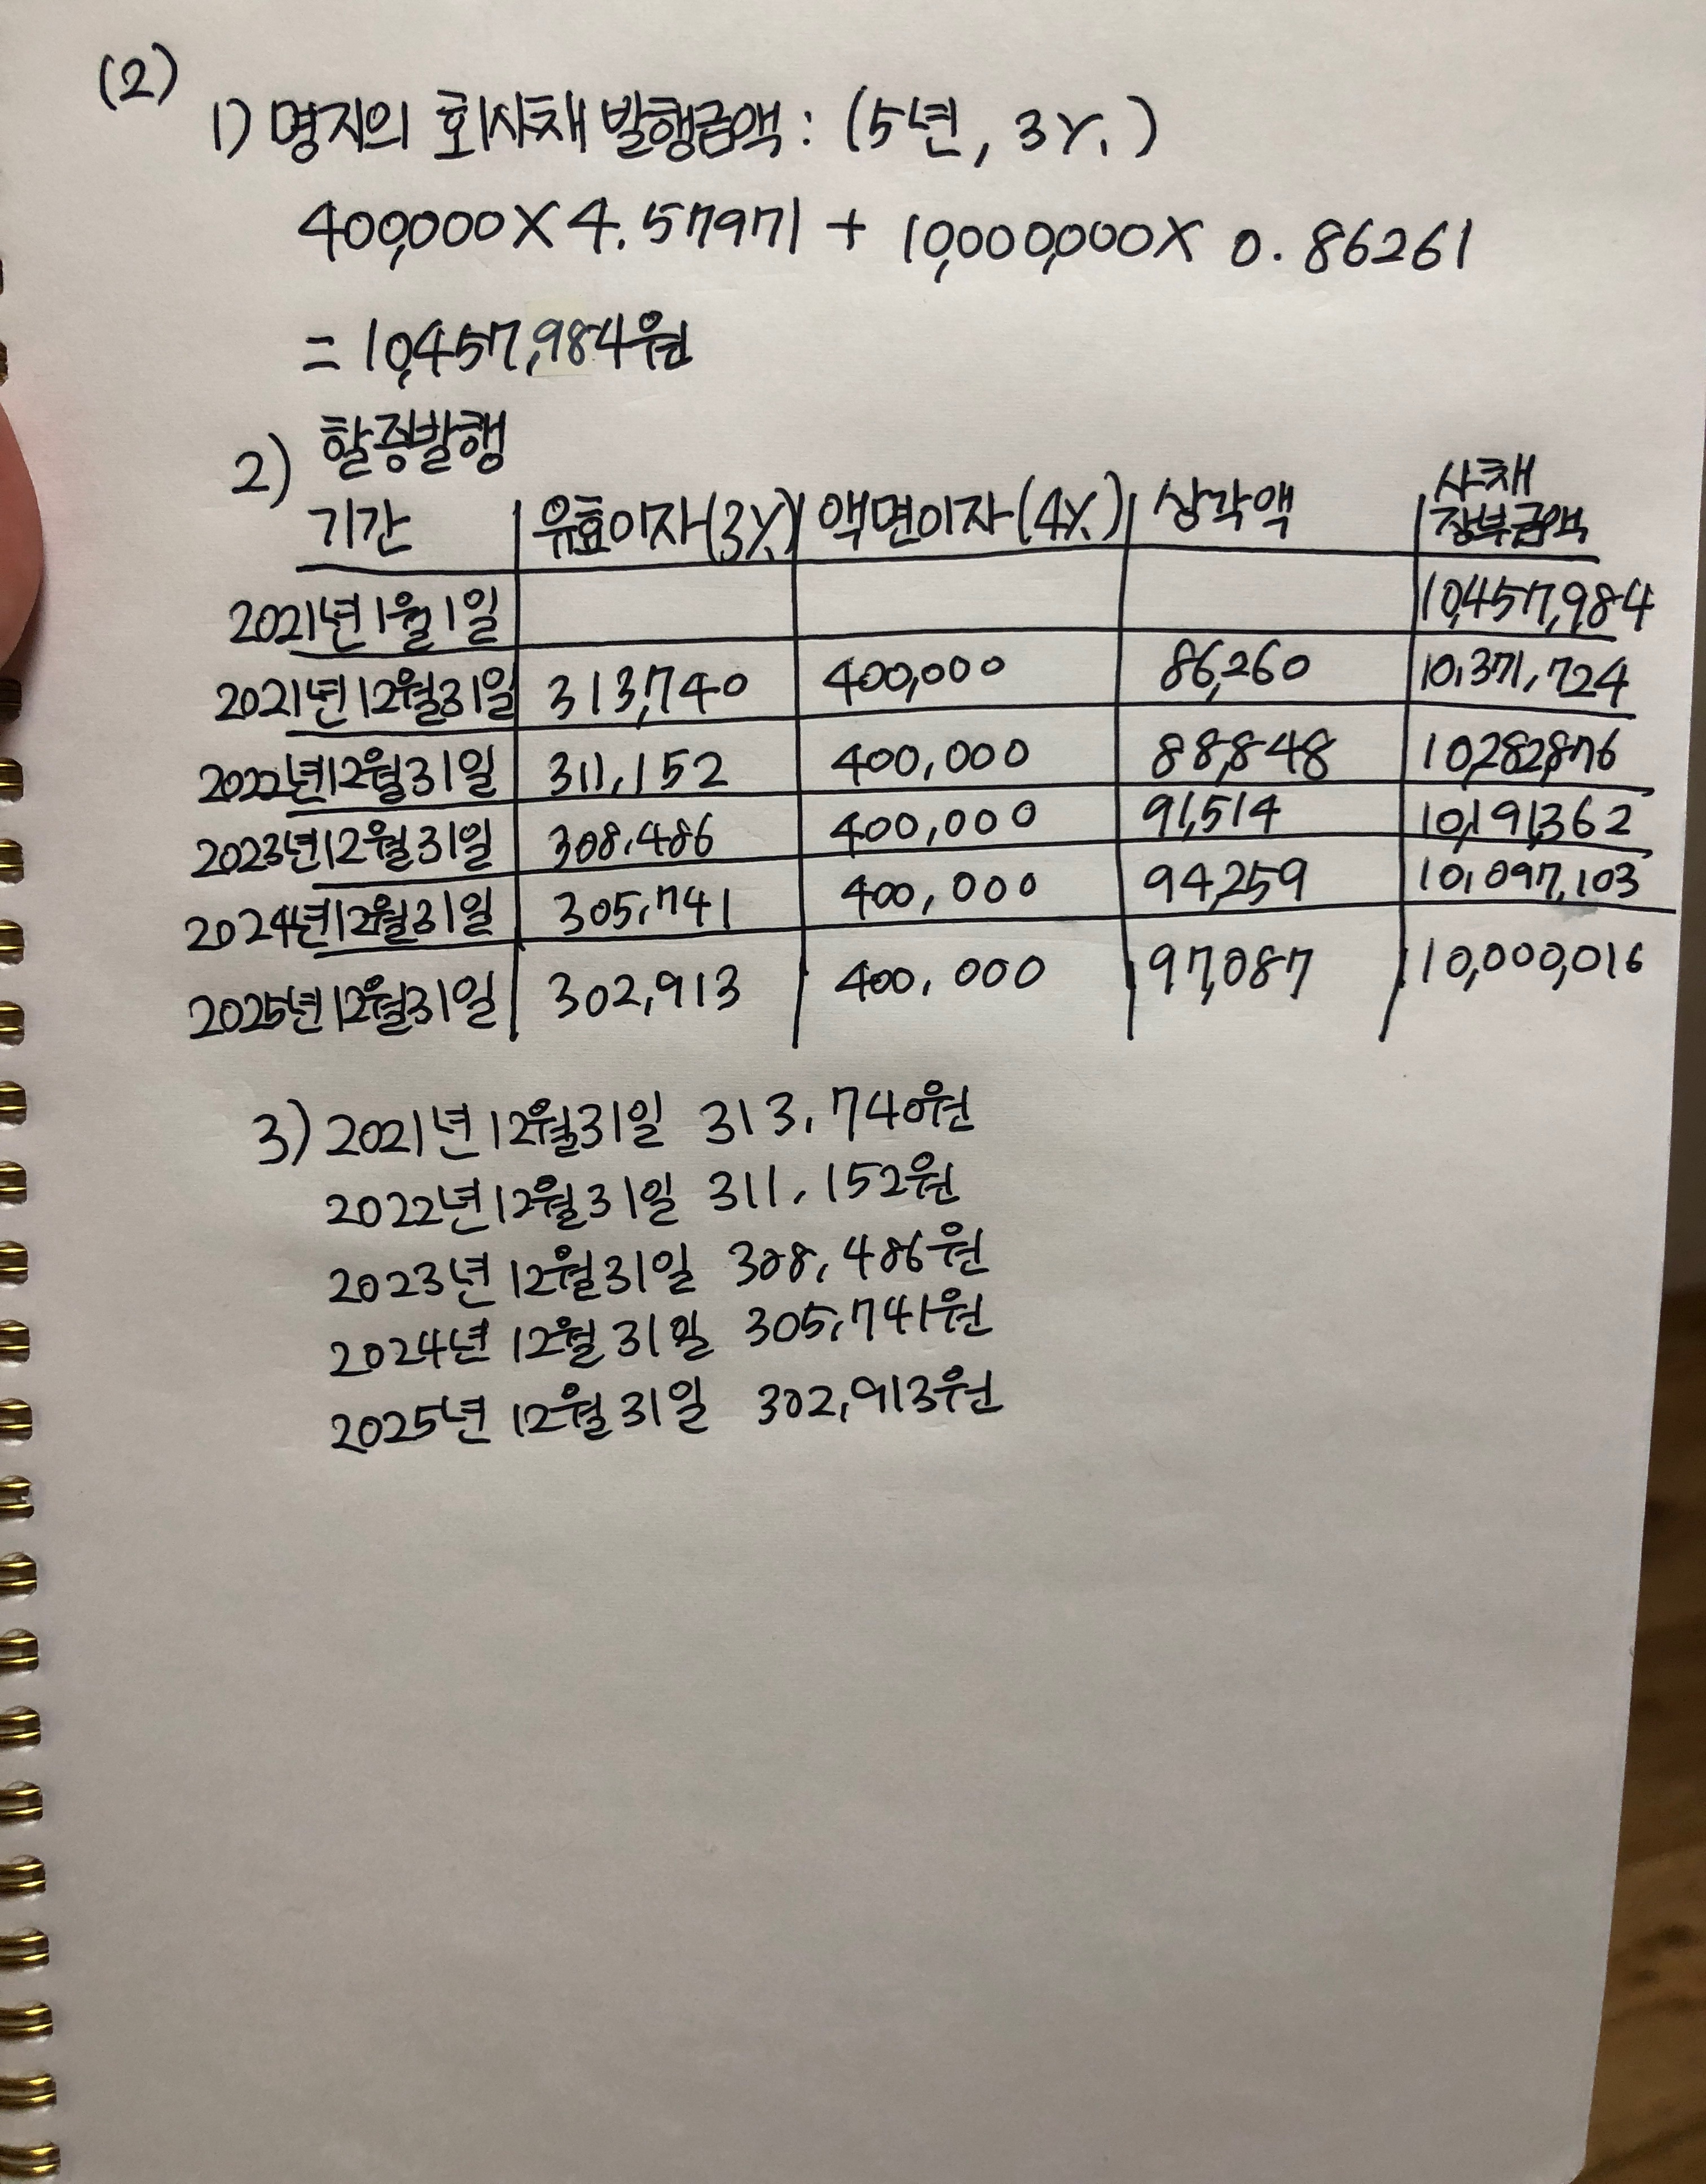 (2)
1) 명지의 회사채 발행금액 : (5년, 3%)
400,000 X 4.57971 + 10,000,000 X 0.86261
= 10,457,984원
2) 할증발행
기간 유효이자(3%) 액면이자(4%) 상각액 사채 장부금액
2021년 1월 1일 10,457,984
2021년 12월 31일 313,740 400,000 86,260 10,371,724
2022년 12월 31일 311,152 400,000 88,848 10,282,876
2023년 12월 31일 308,486 400,000 91,514 10,191,362
2024년 12월 31일 305,741 400,000 94,259 10,097,103
2025년 12월 31일 302,913 400,000 97,087 10,000,016
3) 2021년 12월 31일 313,740원
2022년 12월 31일 311,152원
2023년 12월 31일 308,486원
2024년 12월 31일 305,741원
2025년 12월 31일 302,913원